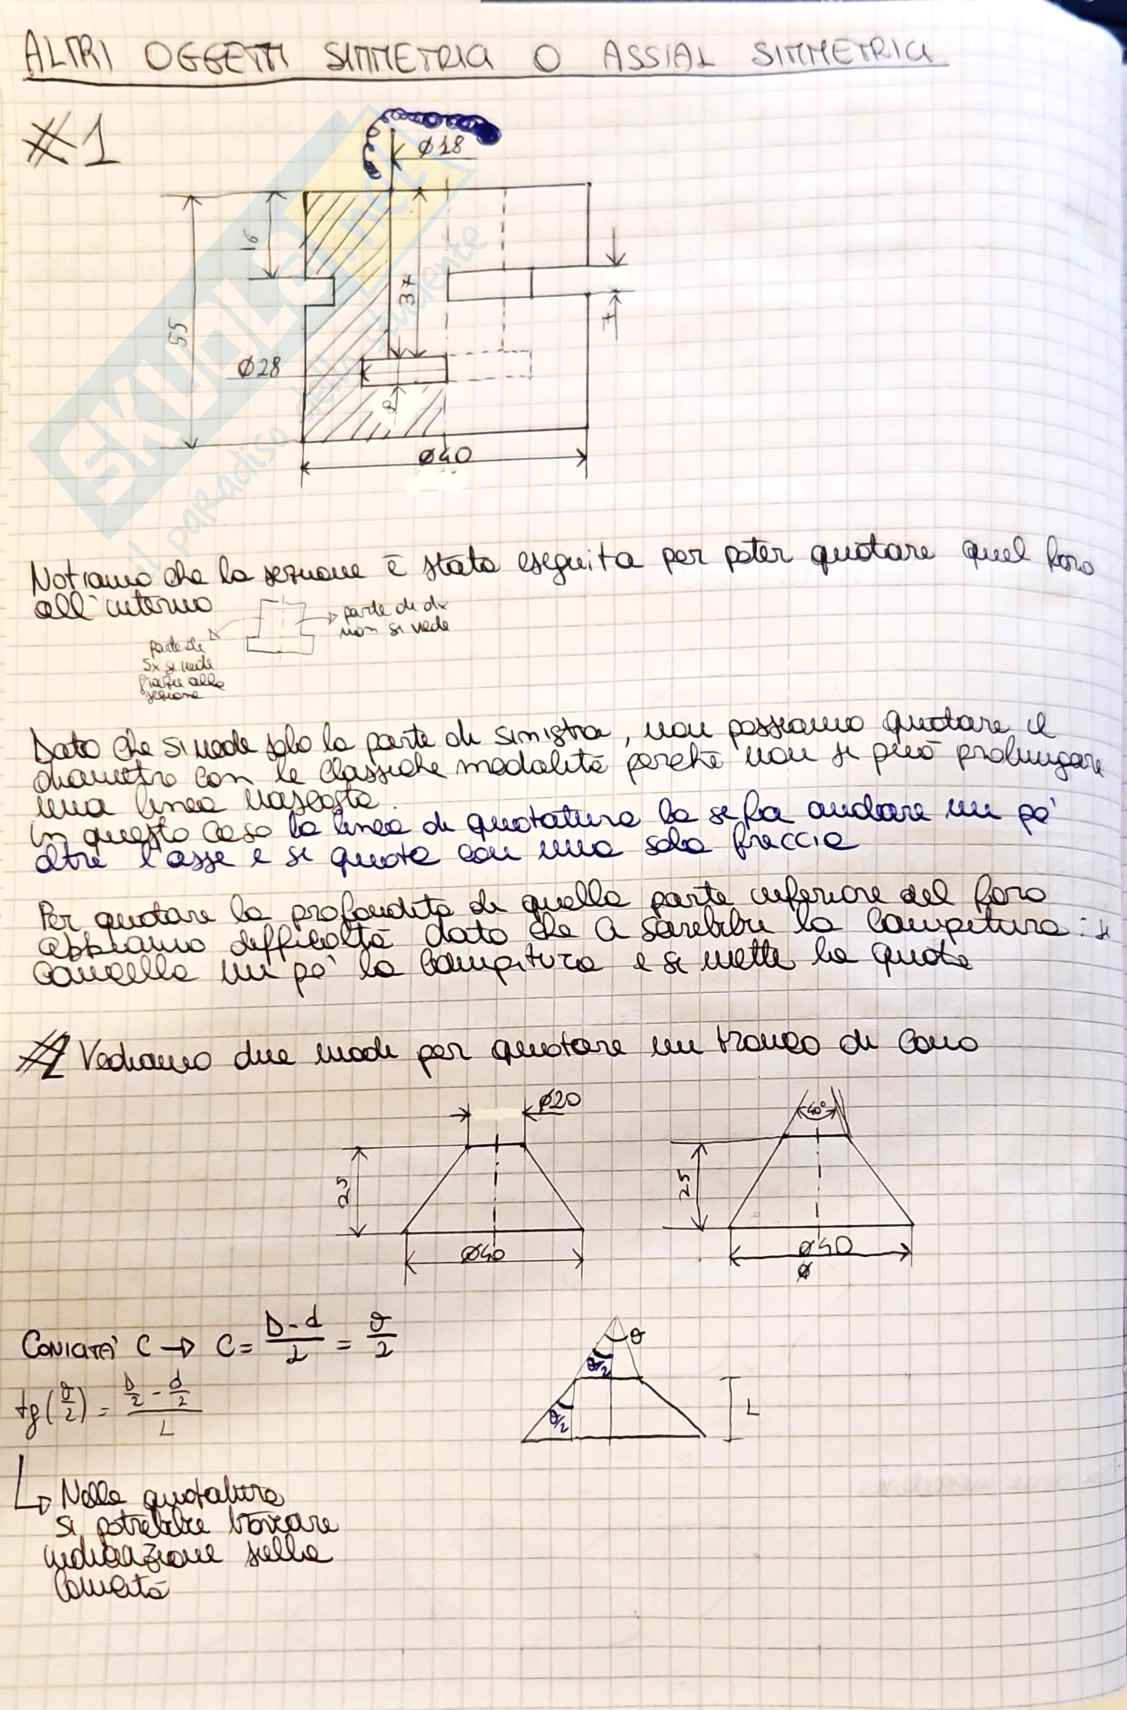 ALTRI OGGETTI SIMMETRIA O ASSIAL SIMMETRIA
#1
Ø18
16
55
37
7
Ø28
Ø40
SKUOLA.net
il paradiso dello studente
Notiamo che la sezione è stata eseguita per poter quotare quel foro
all'interno
parte di dx
non si vede
parte di
sx si vede
grazie alla
sezione
Dato che si vede solo la parte di sinistra, non possiamo quotare il
diametro con le classiche modalità perchè non si può prolungare
una linea nascosta.
in questo caso la linea di quotatura la se fa andare un po'
oltre l'asse e si quota con una sola freccia
Per quotare la profondità di quella parte inferiore del foro
abbiamo difficoltà dato che ci sarebbe la campitura: si
cancella un po' la campitura e si mette la quota
#2 Vediamo due modi per quotare un tronco di cono
Ø20
25
Ø40
40°
25
Ø40
Ø
CONICITA' C → C = D-d/2 = θ/2
tg(θ/2) = D/2 - d/2 / L
θ
θ/2
θ/2
L
↳ Nella quotatura
si potrebbe trovare
indicazione sulla
conicità